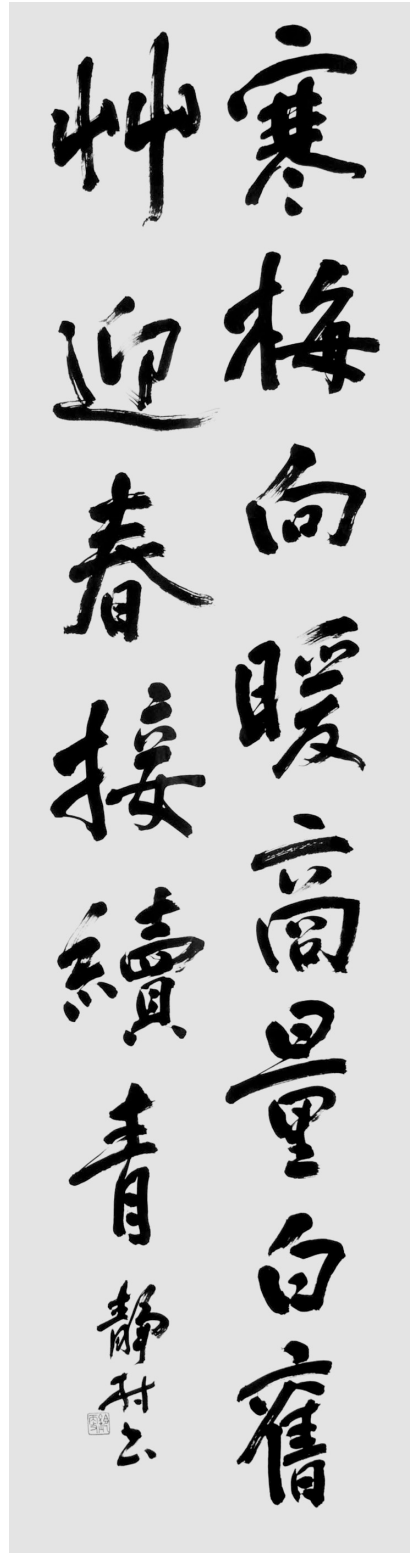 寒梅向暖商量白舊
艸迎春接續青
靜村书